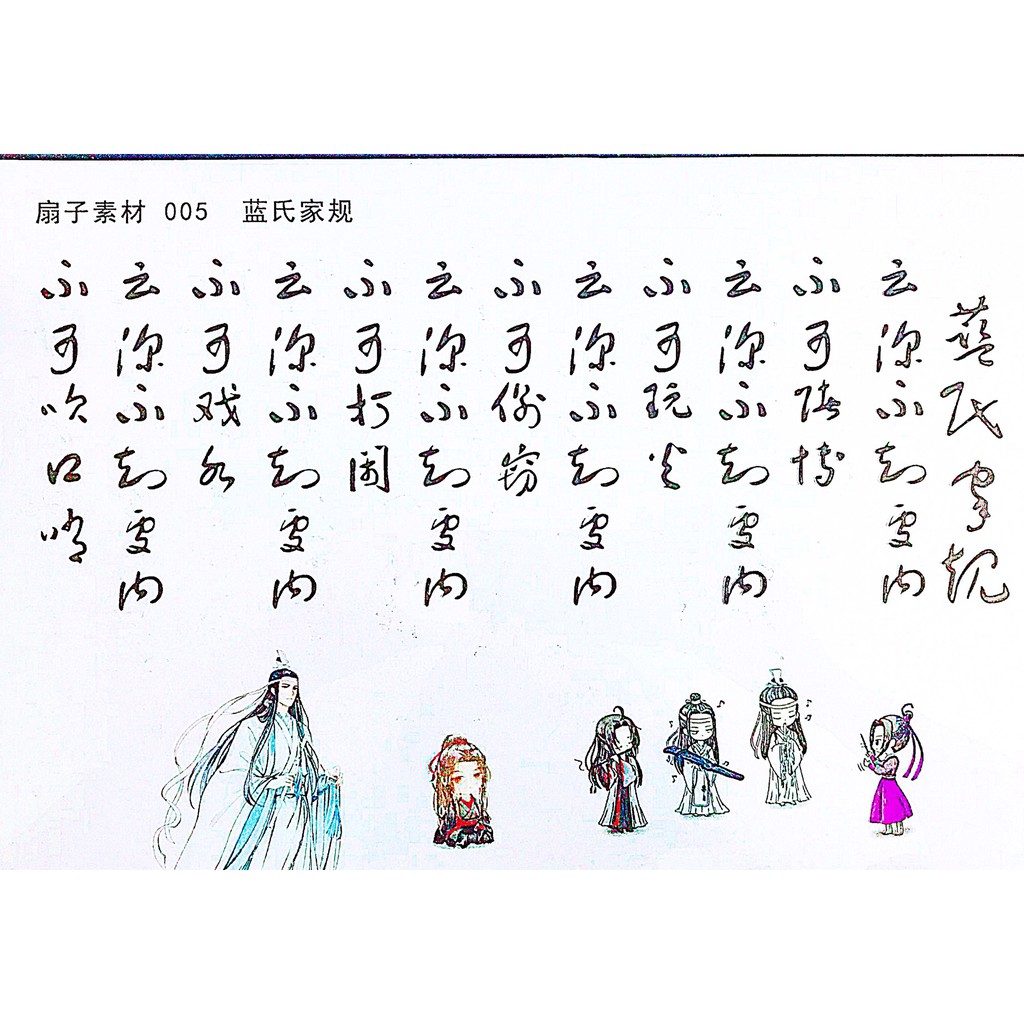 扇子素材 005 蓝氏家规
蓝氏家规
云深不知处内
不可赌博
云深不知处内
不可玩火
云深不知处内
不可偷窃
云深不知处内
不可打闹
云深不知处内
不可戏水
云深不知处内
不可吹口哨